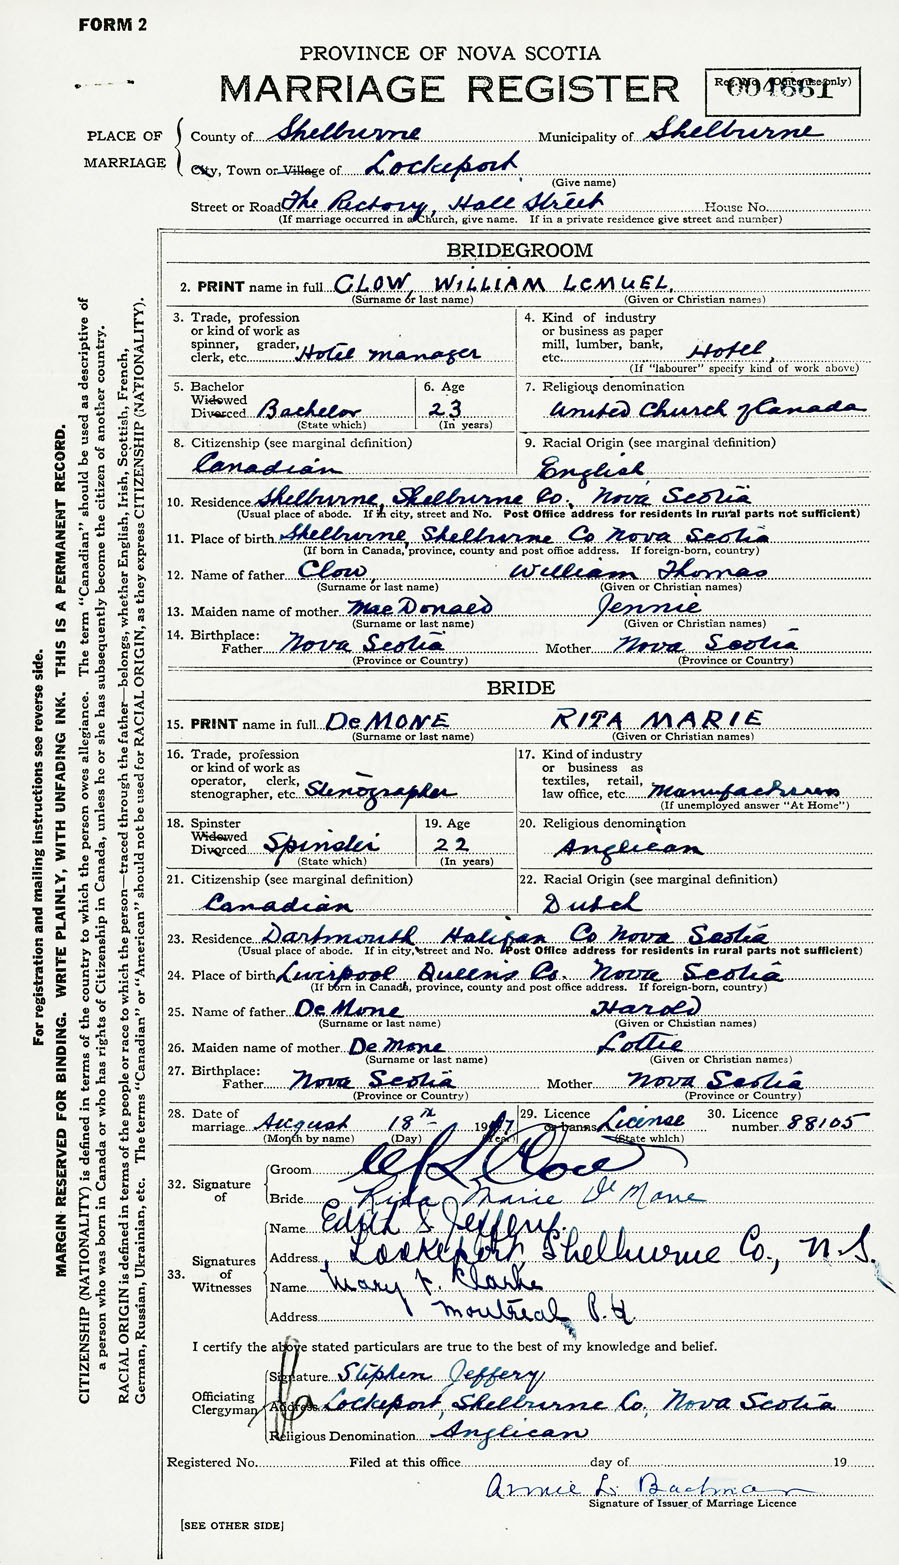 FORM 2
PROVINCE OF NOVA SCOTIA
MARRIAGE REGISTER
Reg. No. (Office use only)
004661
PLACE OF MARRIAGE
County of Shelburne Municipality of Shelburne
City, Town or Village of Lockeport
(Give name)
Street or Road The Rectory, Hall Street House No.
(If marriage occurred in a Church, give name. If in a private residence give street and number)
BRIDEGROOM
2. PRINT name in full CLOW, WILLIAM LEMUEL.
(Surname or last name) (Given or Christian names)
3. Trade, profession or kind of work as spinner, grader, clerk, etc. Hotel manager
4. Kind of industry or business as paper mill, lumber, bank, etc. Hotel,
(If "labourer" specify kind of work above)
5. Bachelor Widowed Divorced Bachelor
(State which)
6. Age 23
(In years)
7. Religious denomination
United Church of Canada
8. Citizenship (see marginal definition)
Canadian
9. Racial Origin (see marginal definition)
English
10. Residence Shelburne, Shelburne Co., Nova Scotia
(Usual place of abode. If in city, street and No. Post Office address for residents in rural parts not sufficient)
11. Place of birth Shelburne, Shelburne Co Nova Scotia
(If born in Canada, province, county and post office address. If foreign-born, country)
12. Name of father Clow, William Thomas
(Surname or last name) (Given or Christian names)
13. Maiden name of mother MacDonald Jennie
(Surname or last name) (Given or Christian names)
14. Birthplace:
Father Nova Scotia Mother Nova Scotia
(Province or Country) (Province or Country)
BRIDE
15. PRINT name in full DeMONE RITA MARIE
(Surname or last name) (Given or Christian names)
16. Trade, profession or kind of work as operator, clerk, stenographer, etc. Stenographer
17. Kind of industry or business as textiles, retail, law office, etc.
(If unemployed answer "At Home")
18. Spinster Widowed Divorced Spinster
(State which)
19. Age 22
(In years)
20. Religious denomination
Anglican
21. Citizenship (see marginal definition)
Canadian
22. Racial Origin (see marginal definition)
Dutch
23. Residence Dartmouth Halifax Co Nova Scotia
(Usual place of abode. If in city, street and No. Post Office address for residents in rural parts not sufficient)
24. Place of birth Liverpool Queens Co. Nova Scotia
(If born in Canada, province, county and post office address. If foreign-born, country)
25. Name of father DeMone Harold
(Surname or last name) (Given or Christian names)
26. Maiden name of mother DeMone Lottie
(Surname or last name) (Given or Christian names)
27. Birthplace:
Father Nova Scotia Mother Nova Scotia
(Province or Country) (Province or Country)
28. Date of marriage August 18th 1947
(Month by name) (Day) (Year)
29. Licence or banns License
(State which)
30. Licence number 88105
32. Signature of
Groom Clow
Bride Rita Marie DeMone
33. Signatures of Witnesses
Name Edith S. Jeffery.
Address Lockeport, Shelburne Co., N.S.
Name Mary F. Clarke
Address Montreal P.Q.
I certify the above stated particulars are true to the best of my knowledge and belief.
Officiating Clergyman
Signature Stephen Jeffery
Address Lockeport, Shelburne Co, Nova Scotia
Religious Denomination Anglican
Registered No. Filed at this office day of 19
Annie L. Bachman
Signature of Issuer of Marriage Licence
[SEE OTHER SIDE]
For registration and mailing instructions see reverse side.
MARGIN RESERVED FOR BINDING. WRITE PLAINLY, WITH UNFADING INK. THIS IS A PERMANENT RECORD.
CITIZENSHIP (NATIONALITY) is defined in terms of the country to which the person owes allegiance. The term "Canadian" should be used as descriptive of
a person who was born in Canada or who has rights of Citizenship in Canada, unless he or she has subsequently become the citizen of another country.
RACIAL ORIGIN is defined in terms of the people or race to which the person—traced through the father—belongs, whether English, Irish, Scottish, French,
German, Russian, Ukrainian, etc. The terms "Canadian" or "American" should not be used for RACIAL ORIGIN, as they express CITIZENSHIP (NATIONALITY).